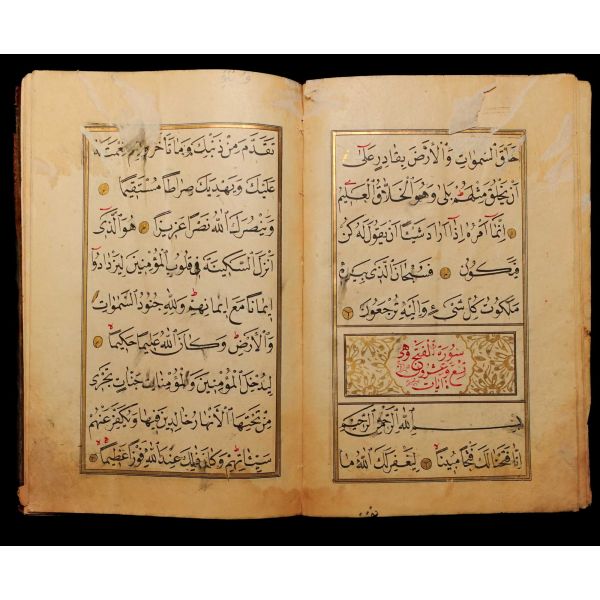 خلق السموات والأرض بقادر على
أن يخلق مثلهم بلى وهو الخلاق العليم
إنما أمره إذا أراد شيئا أن يقول له كن
فيكون فسبحان الذي بيده
ملكوت كل شيء وإليه ترجعون
سورة الفتح وهي
تسع وعشرون
آيات
بسم الله الرحمن الرحيم
إنا فتحنا لك فتحا مبينا ليغفر لك الله ما
تقدم من ذنبك وما تأخر ويتم نعمته
عليك ويهديك صراطا مستقيما
وينصرك الله نصرا عزيزا هو الذي
أنزل السكينة في قلوب المؤمنين ليزدادوا
إيمانا مع إيمانهم ولله جنود السموات
والأرض وكان الله عليما حكيما
ليدخل المؤمنين والمؤمنات جنات تجري
من تحتها الأنهار خالدين فيها ويكفر عنهم
سيئاتهم وكان ذلك عند الله فوزا عظيما